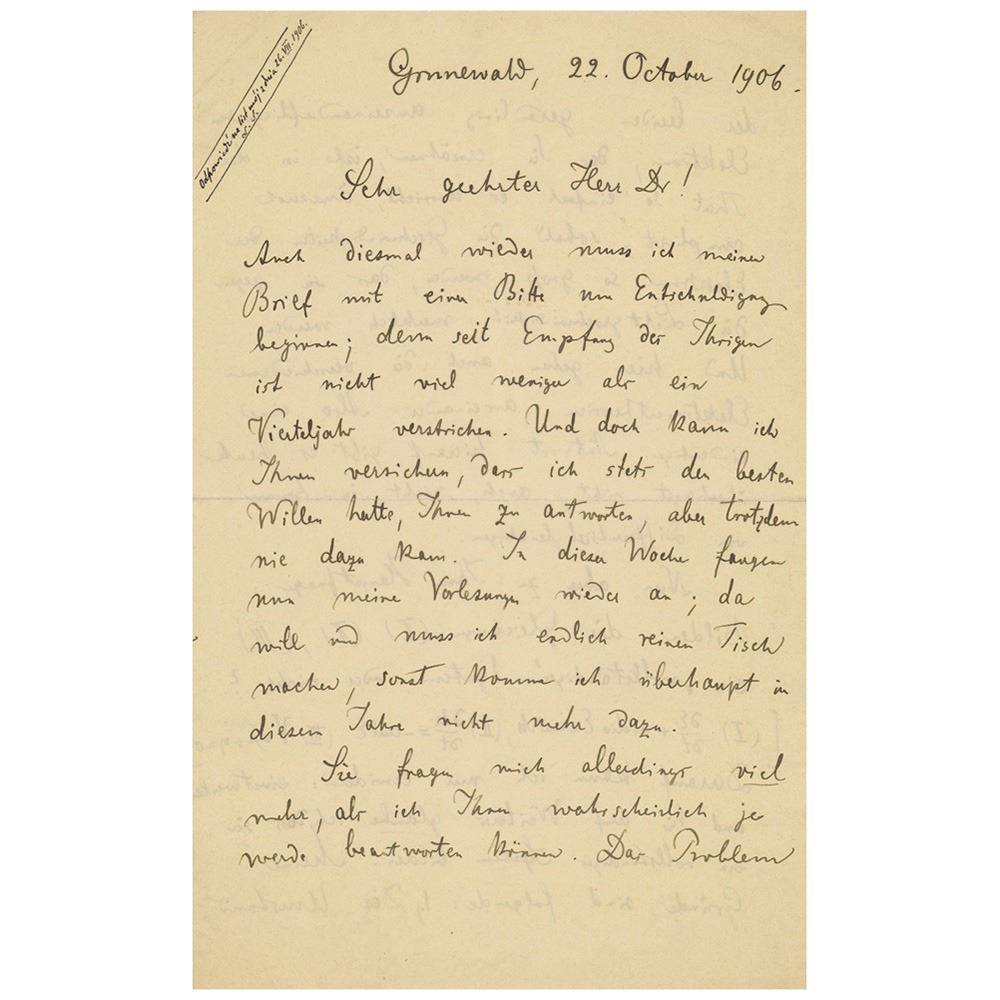 Odpowiedź na list mój z dnia 26. VII. 1906.
L. S.
Grunewald, 22. October 1906.
Sehr geehrter Herr Dr!
Auch diesmal wieder muss ich meinen
Brief mit einer Bitte um Entschuldigung
beginnen; denn seit Empfang des Ihrigen
ist nicht viel weniger als ein
Vierteljahr verstrichen. Und doch kann ich
Ihnen versichern, dass ich stets den besten
Willen hatte, Ihnen zu antworten, aber trotzdem
nie dazu kam. In dieser Woche fangen
nun meine Vorlesungen wieder an; da
will und muss ich endlich reinen Tisch
machen, sonst komme ich überhaupt in
diesem Jahre nicht mehr dazu.
Sie fragen mich allerdings viel
mehr, als ich Ihnen wahrscheinlich je
werde beantworten können. Das Problem